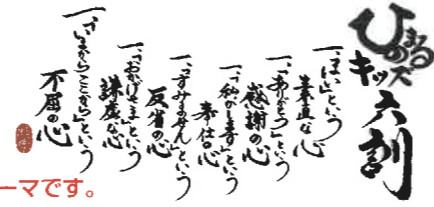 ひのまる
キッズ六訓
一、「はい」という
素直な心
一、「ありがとう」という
感謝の心
一、「私がします」という
奉仕の心
一、「すみません」という
反省の心
一、「おかげさま」という
謙虚な心
一、「いまからここから」という
不屈の心
ーマです。